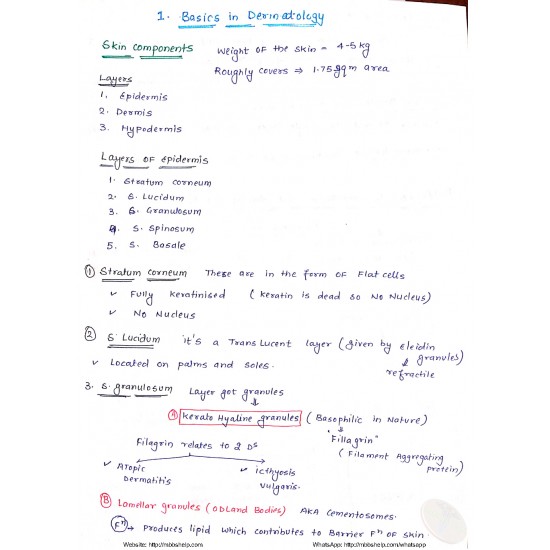 1. Basics in Dermatology
Skin components
Weight of the skin = 4-5 kg
Roughly covers ⇒ 1.75 sqm area
Layers
1. Epidermis
2. Dermis
3. Hypodermis
Layers of epidermis
1. Stratum corneum
2. S. Lucidum
3. S. Granulosum
4. S. Spinosum
5. S. Basale
① Stratum corneum These are in the form of Flat cells
✓ Fully keratinised (keratin is dead so No Nucleus)
✓ No Nucleus
② S Lucidum it's a TransLucent layer (given by eleidin granules)
↓ refractile
✓ Located on palms and soles.
3. S. granulosum Layer got granules
↓
Ⓐ Kerato Hyaline granules (Basophilic in Nature)
↓
"Fillagrin"
(Filament Aggregating protein)
Filagrin relates to 2 Ds
✓ Atopic Dermatitis
✓ icthyosis vulgaris.
Ⓑ Lamellar granules (ODLand Bodies) AKA Cementosomes.
Fⁿ → Produces lipid which contributes to Barrier Fⁿ of skin.
Website: http://mbbshelp.com
WhatsApp: http://mbbshelp.com/whatsapp